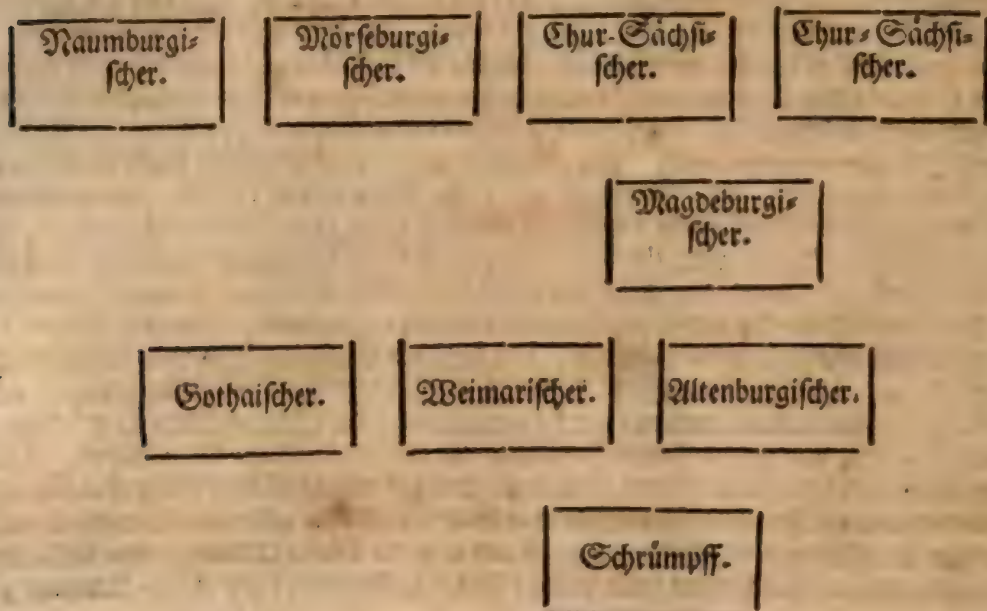 Naumburgi⸗
ſcher.
Mörſeburgi⸗
ſcher.
Chur-Sächſi⸗
ſcher.
Chur⸗Sächſi⸗
ſcher.
Magdeburgi⸗
ſcher.
Gothaiſcher.
Weimariſcher.
Altenburgiſcher.
Schrümpff.